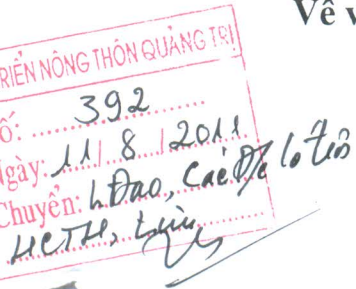 Về v
RIỂN NÔNG THÔN QUẢNG TRỊ
ố: 392
gày: 11/8/2011
Chuyển: LĐạo, Các Đ/c
HCTH, Lưu